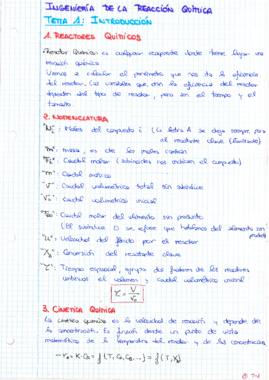 INGENIERÍA DE LA REACCIÓN QUÍMICA
TEMA 1: INTRODUCCIÓN
1. REACTORES QUÍMICOS
-Reactor Químico es cualquier recipiente donde tiene lugar una
reacción química
Vamos a calcular el parámetro que nos da la eficiencia
del reactor, las variables que dan la eficiencia del reactor
dependen del tipo de reactor, pero son el tiempo y el
tamaño.
2. NOMENCLATURA
"Ni": Moles del compuesto i (La letra A se deja siempre para
el reactante clave (limitante)
"mi": masa, es de los moles
"Fi": Caudal molar (subíndices nos indican el compuesto)
"m": Caudal másico
"V": Caudal volumétrico total sin subíndice
"V0": Caudal volumétrico inicial
Caudal molar del elemento sin producto
(El subíndice 0 se refiere que hablamos del elemento sin
"u": Velocidad del fluido por el reactor
"XA": Conversión del reactante clave
"τ": Tiempo espacial, agrupa dos factores de los reactores
continuos el volumen y caudal volumétrico inicial
τ = V / V0
3. CINÉTICA QUÍMICA
La cinética química es la velocidad de reacción y depende de
la concentración. Es función desde un punto de vista
matemático de la temperatura del reactor y de las concentraciones